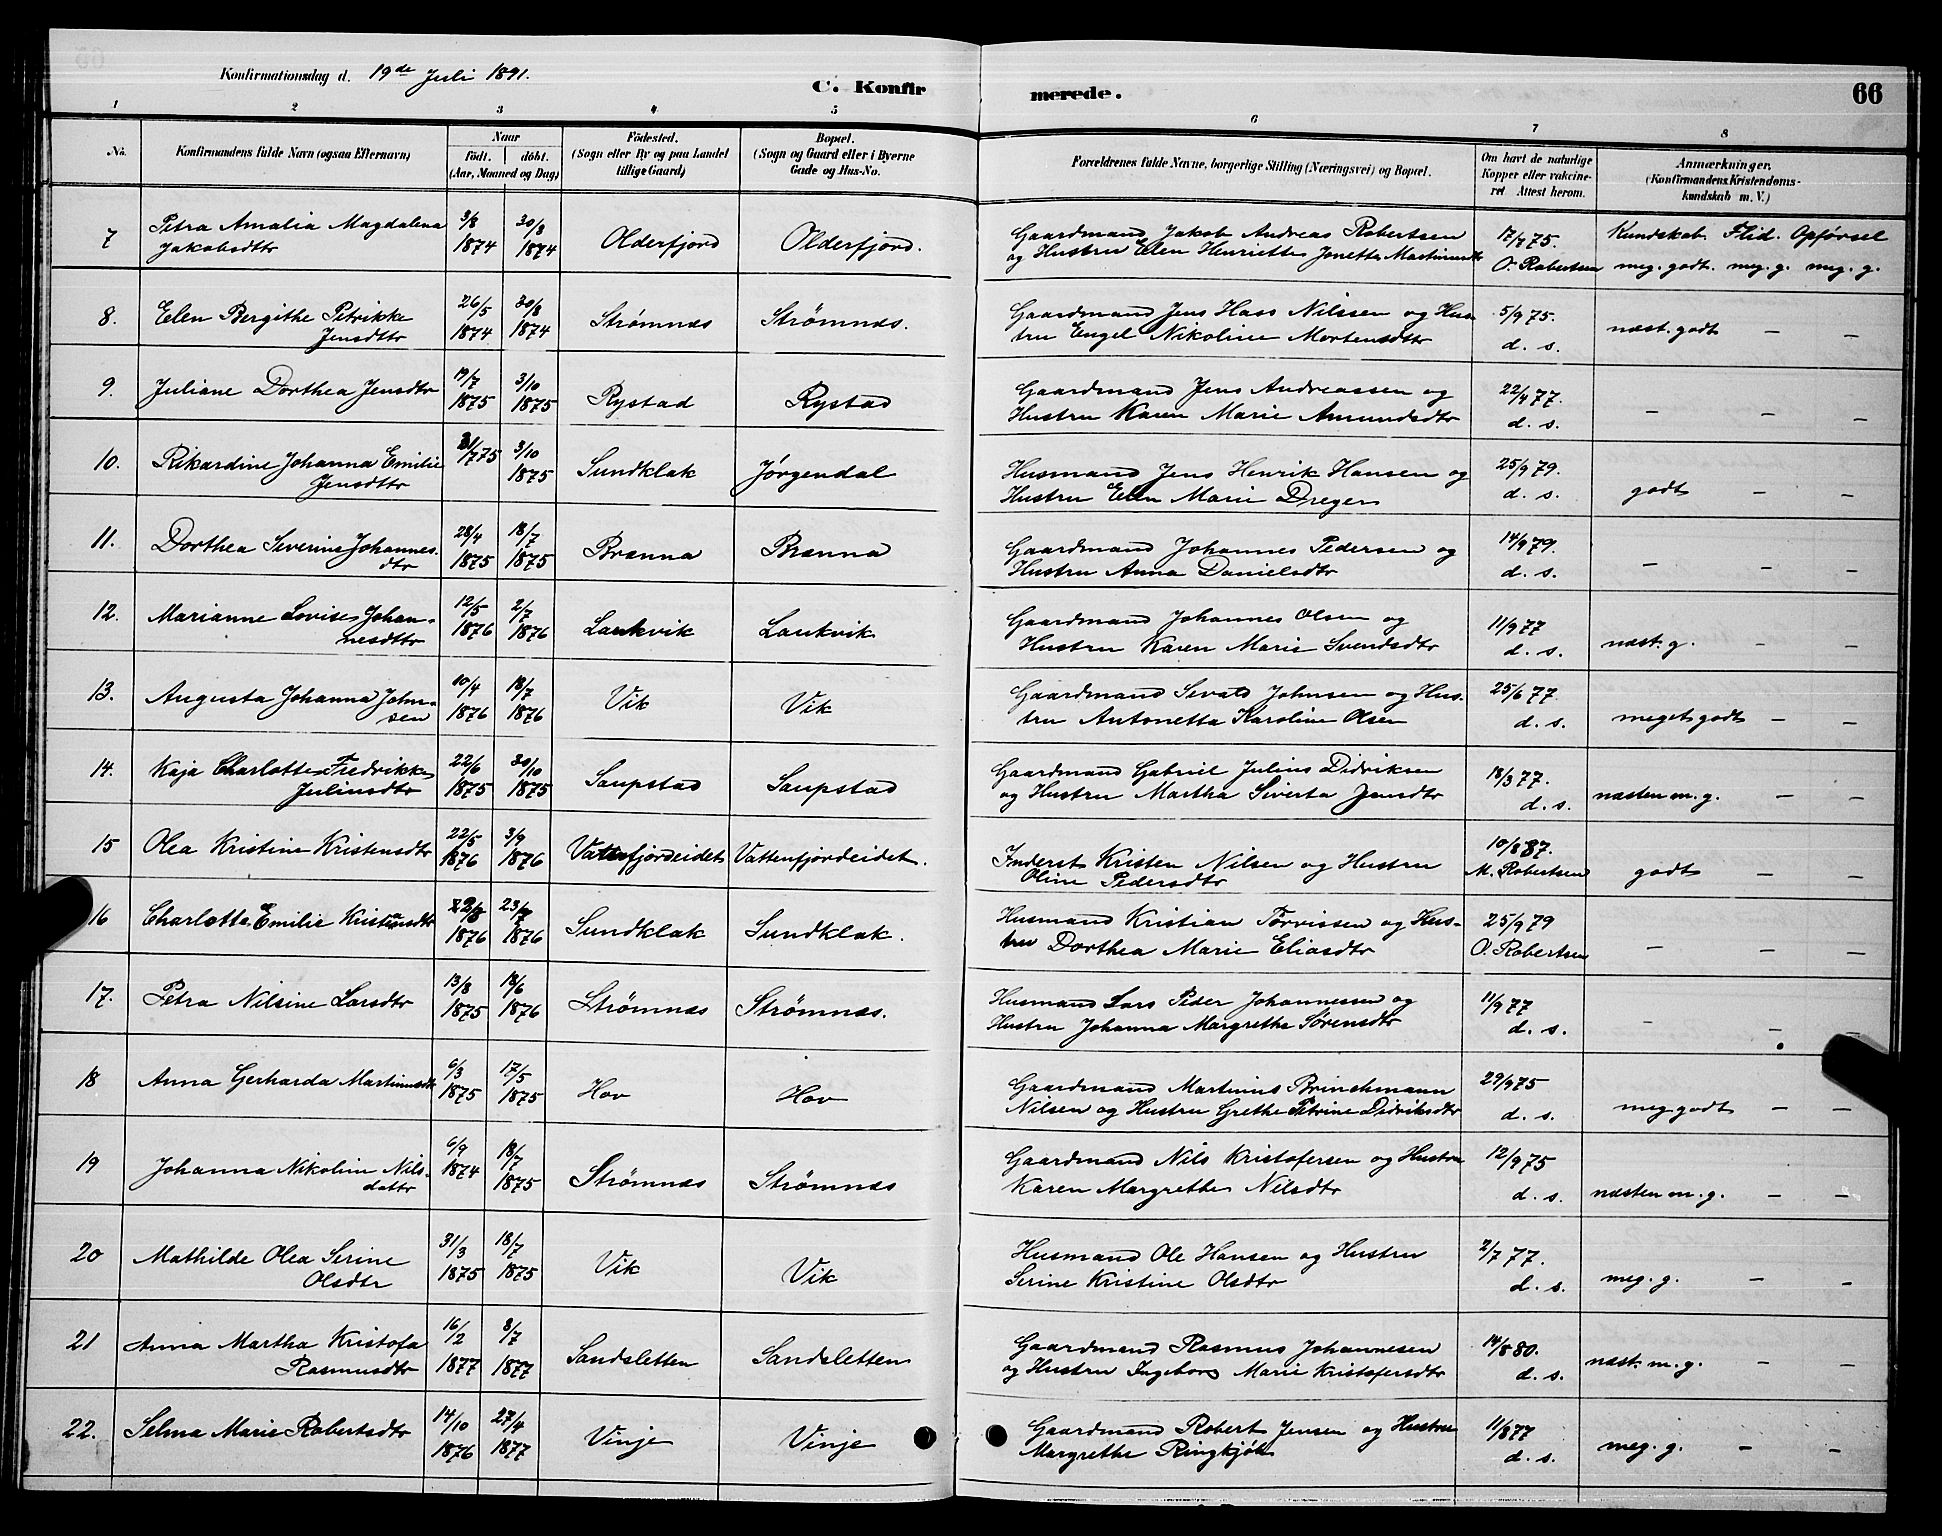 Konfirmationsdag d. 19de Juli 1891.
C. Konfirmerede.
66
1 2 3 4 5 6 7 8
No. Konfirmandens fulde Navn (ogsaa Efternavn)
Naar födt. döbt. (Aar, Maaned og Dag)
Födested. (Sogn eller By og paa Landet tillige Gaard)
Bopæl. (Sogn og Gaard eller i Byerne Gade og Hus-No.
Forældrenes fulde Navne, borgerlige Stilling (Næringsvei) og Bopæl.
Om havt de naturlige Kopper eller vakcineret. Attest herom.
Anmærkninger, (Konfirmandens Kristendomskundskab m. V.)
7 Petra Amalia Magdalena 3/8 30/8 Olderfjord Olderfjord. Gaardmand Jakob Andreas Robertsen 17/7 75. Kundskab. Flid. Opförsel
Jakobsdtr 1874 1874 og Hustru Elen Henriette Jonette Martinusdtr O. Robertsen meg. godt. meg. g. meg. g.
8. Elen Bergithe Petrikke 26/5 30/8 Strömnæs Strömnæs. Gaardmand Jens Hass Nilssen og Hus 5/9 75. næst. godt — —
Jensdttr 1874 1874 tru Engel Nikoline Mortensdttr d. s.
9. Juliane Dorthea Jensdtr 19/7 3/10 Rystad Rystad Gaardmand Jens Andreassen og 22/4 77. — — —
1875 1875 Hustru Karen Marie Amundsdtr d. s.
10. Rikardine Johanna Emilie 31/7 75 3/10 Sundklak Jörgendal Husmand Jens Henrik Hansen og 25/9 79. godt — —
Jensdttr 1875 Hustru Elen Marie Dreyer d. s.
11. Dorthea Severine Johannes. 28/4 18/7 Brænna Brænna Gaardmand Johannes Pedersen og 14/9 79. — — —
dtr 1875 1875 Hustru Anna Danielsdtr d. s.
12. Marianne Lovise Johan- 12/5 2/7 Laukvik Laukvik Gaardmand Johannes Olsen og 11/9 77 næst. g. — —
nesdttr 1876 1876 Hustru Karen Marie Svendsdtr d. s.
13. Augusta Johanna John- 10/4 18/7 Vik Vik Gaardmand Sevald Johnsen og Hus- 25/6 77 meget godt — —
sen 1876 1876 tru Antonetta Karoline Olsen d. s.
14. Kaja Charlotte Fredrikke 22/6 30/10 Saupstad Saupstad Gaardmand Gabriel Julius Didriksen 18/3 77. næsten m. g. — —
Juliusdtr 1875 1875 og Hustru Martha Siverta Jensdtr d. s.
15 Olea Kristine Kristensdtr 22/5 3/9 Vattenfjordeidet Vattenfjordeidet. Inderst Kristen Nilsen og Hustru 10/8 87. godt — —
1876 1876 Oline Pedersdtr M. Robertsen
16 Charlotte Emilie Kristiansdtr 23/7 Sundklak Sundklak. Husmand Kristian Torvissen og Hus- 25/9 79 — — —
1876 1876 tru Dorthea Marie Eliasdtr O. Robertsen
17. Petra Nilsine Larsdtr 13/8 18/6 Strömnæs Strömnæs. Husmand Lars Peder Johannessen og 11/9 77 — — —
1875 1876 Hustru Johanna Margrethe Sörensdtr d. s.
18 Anna Gerharda Martinusdtr 6/3 17/5 Hov Hov Gaardmand Martinus Brinchmann 29/9 75 meg godt — —
1875 1875 Nilsen og Hustru Grethe Petrine Didriksdtr d. s.
19 Johanna Nikoline Nils- 6/9 18/7 Strömnæs Strömnæs Gaardmand Nils Kristofersen og Hustru 12/9 75 næsten m. g. — —
dattr 1874 1875 Karen Margrethe Nilsdtr d. s.
20 Mathilde Olea Serine 31/3 18/7 Vik Vik Husmand Ole Hansen og Hustru 2/7 77. meg. g. — —
Olsdtr 1875 1875 Serine Kristine Olsdtr d. s.
21 Anna Martha Kristofa 16/2 8/7 Sandsletten Sandsletten Gaardmand Rasmus Johannesen 14/8 80. næst. m. g. — —
Rasmusdtr 1877 1877 og Hustru Ingeborg Marie Kristofersdtr d. s.
22. Selma Marie Robertsdtr 14/10 27/4 Vinje Vinje Gaardmand Robert Jensen og Hustru 11/8 77 meg. g. — —
1876 1877 Margrethe Ringkjöb d. s.